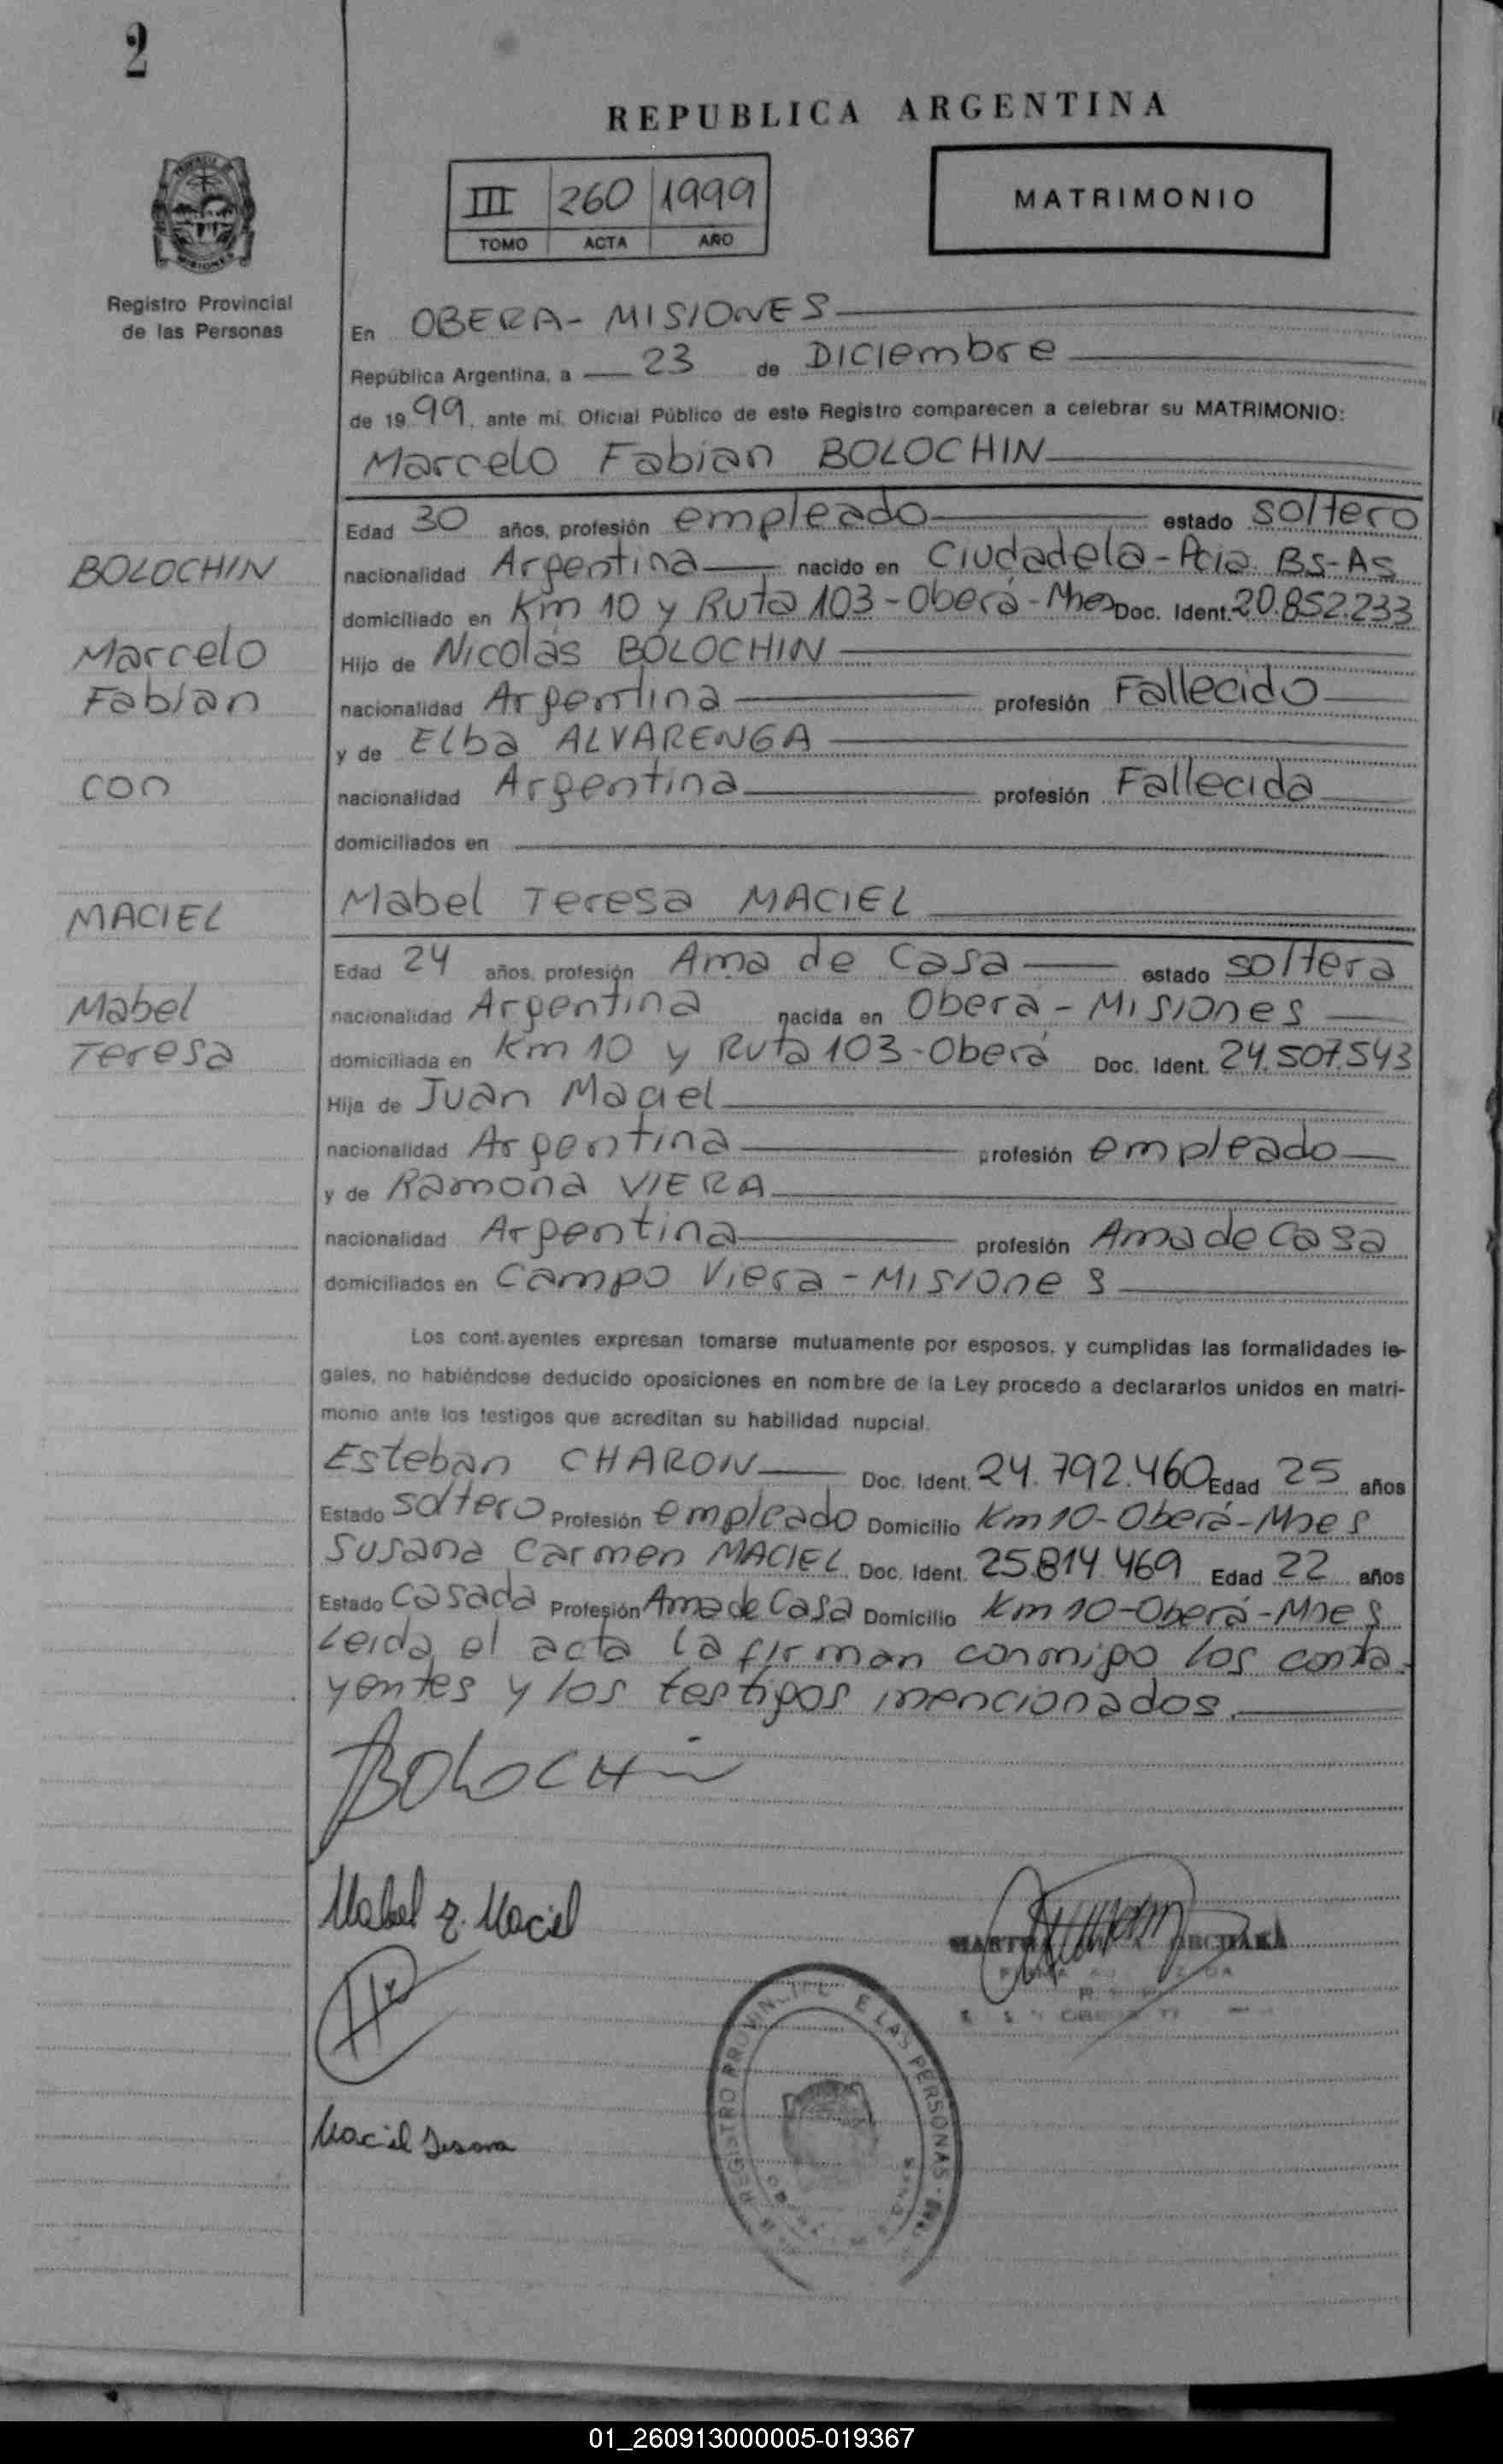 2
REPUBLICA ARGENTINA
III 260 1999
TOMO ACTA AÑO
MATRIMONIO
Registro Provincial
de las Personas
En OBERA - MISIONES
República Argentina, a 23 de Diciembre
de 1999, ante mí, Oficial Público de este Registro comparecen a celebrar su MATRIMONIO:
Marcelo Fabian BOLOCHIN
Edad 30 años, profesión empleado estado soltero
BOLOCHIN
nacionalidad Argentina nacido en Ciudadela - Pcia. BS-AS
domiciliado en Km 10 y Ruta 103 - Oberá - Mnes Doc. Ident. 20.852.233
Marcelo
Hijo de Nicolás BOLOCHIN
Fabian
nacionalidad Argentina profesión Fallecido
y de Elba ALVARENGA
con
nacionalidad Argentina profesión Fallecida
domiciliados en
MACIEL
Mabel Teresa MACIEL
Edad 24 años, profesión Ama de Casa estado soltera
Mabel
nacionalidad Argentina nacida en Oberá - Misiones
Teresa
domiciliada en Km 10 y Ruta 103 - Oberá Doc. Ident. 24.507.543
Hija de Juan Maciel
nacionalidad Argentina profesión empleado
y de Ramona VIERA
nacionalidad Argentina profesión Ama de Casa
domiciliados en Campo Viera - Misiones
Los cont.ayentes expresan tomarse mutuamente por esposos, y cumplidas las formalidades le-
gales, no habiéndose deducido oposiciones en nombre de la Ley procedo a declararlos unidos en matri-
monio ante los testigos que acreditan su habilidad nupcial.
Esteban CHARON Doc. Ident. 24.792.460 Edad 25 años
Estado soltero Profesión empleado Domicilio Km 10 - Oberá - Mnes
Susana Carmen MACIEL Doc. Ident. 25.814.469 Edad 22 años
Estado casada Profesión Ama de Casa Domicilio Km 10 - Oberá - Mnes
Leida el acta la firman conmigo los conta-
yentes y los testigos mencionados.
BOLOCHIN
Mabel T. Maciel
Maciel Susana
REGISTRO PROVINCIAL DE LAS PERSONAS
01_260913000005-019367